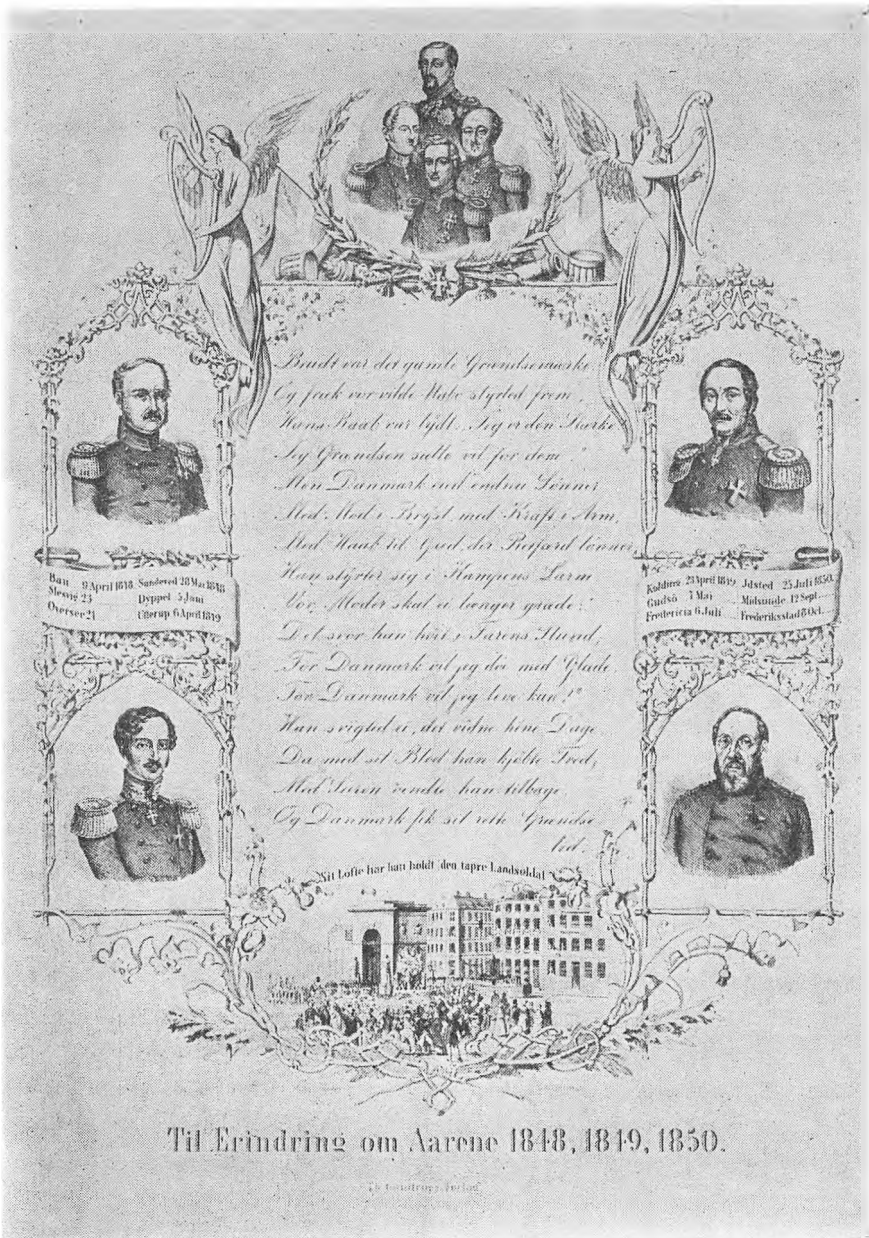 Brudt var det gamle Grændsemærke
Og fræk vor vilde Nabo styrted frem,
Hans Raab var lydt: „Jeg er den Stærke
Jeg Grændsen sætte vil for dem."
Men Danmark end endnu Sönner
Med Mod i Bryst, med Kraft i Arm,
Med Haab til Gud, der Retfærd lönner
Han styrter sig i Kampens Larm
Vor Moder skal ei længer græde:
Det svor han höit i Farens Stund,
For Danmark vil jeg döe med Glæde
For Danmark vil jeg leve kun!"
Han svigted ei, det vidne hine Dage
Da med sit Blod han kjöbte Fred,
Med Seiren vendte han tilbage,
Og Danmark fik sit rette Grændse
led.
Bau 9 April 1848.
Slesvig 23
Oversee 21
Sundeved 28 Mai 1848
Dyppel 5 Juni
Ullerup 6 April 1849
Kolding 23 April 1849
Gudsö 7 Mai
Fredericia 6 Juli
Jdsted 25 Juli 1850.
Midsunde 12 Sept.
Frederiksstad 8 Oct.
Sit Löfte har han holdt den tapre Landsoldat
Til Erindring om Aarene 1848, 1849, 1850.